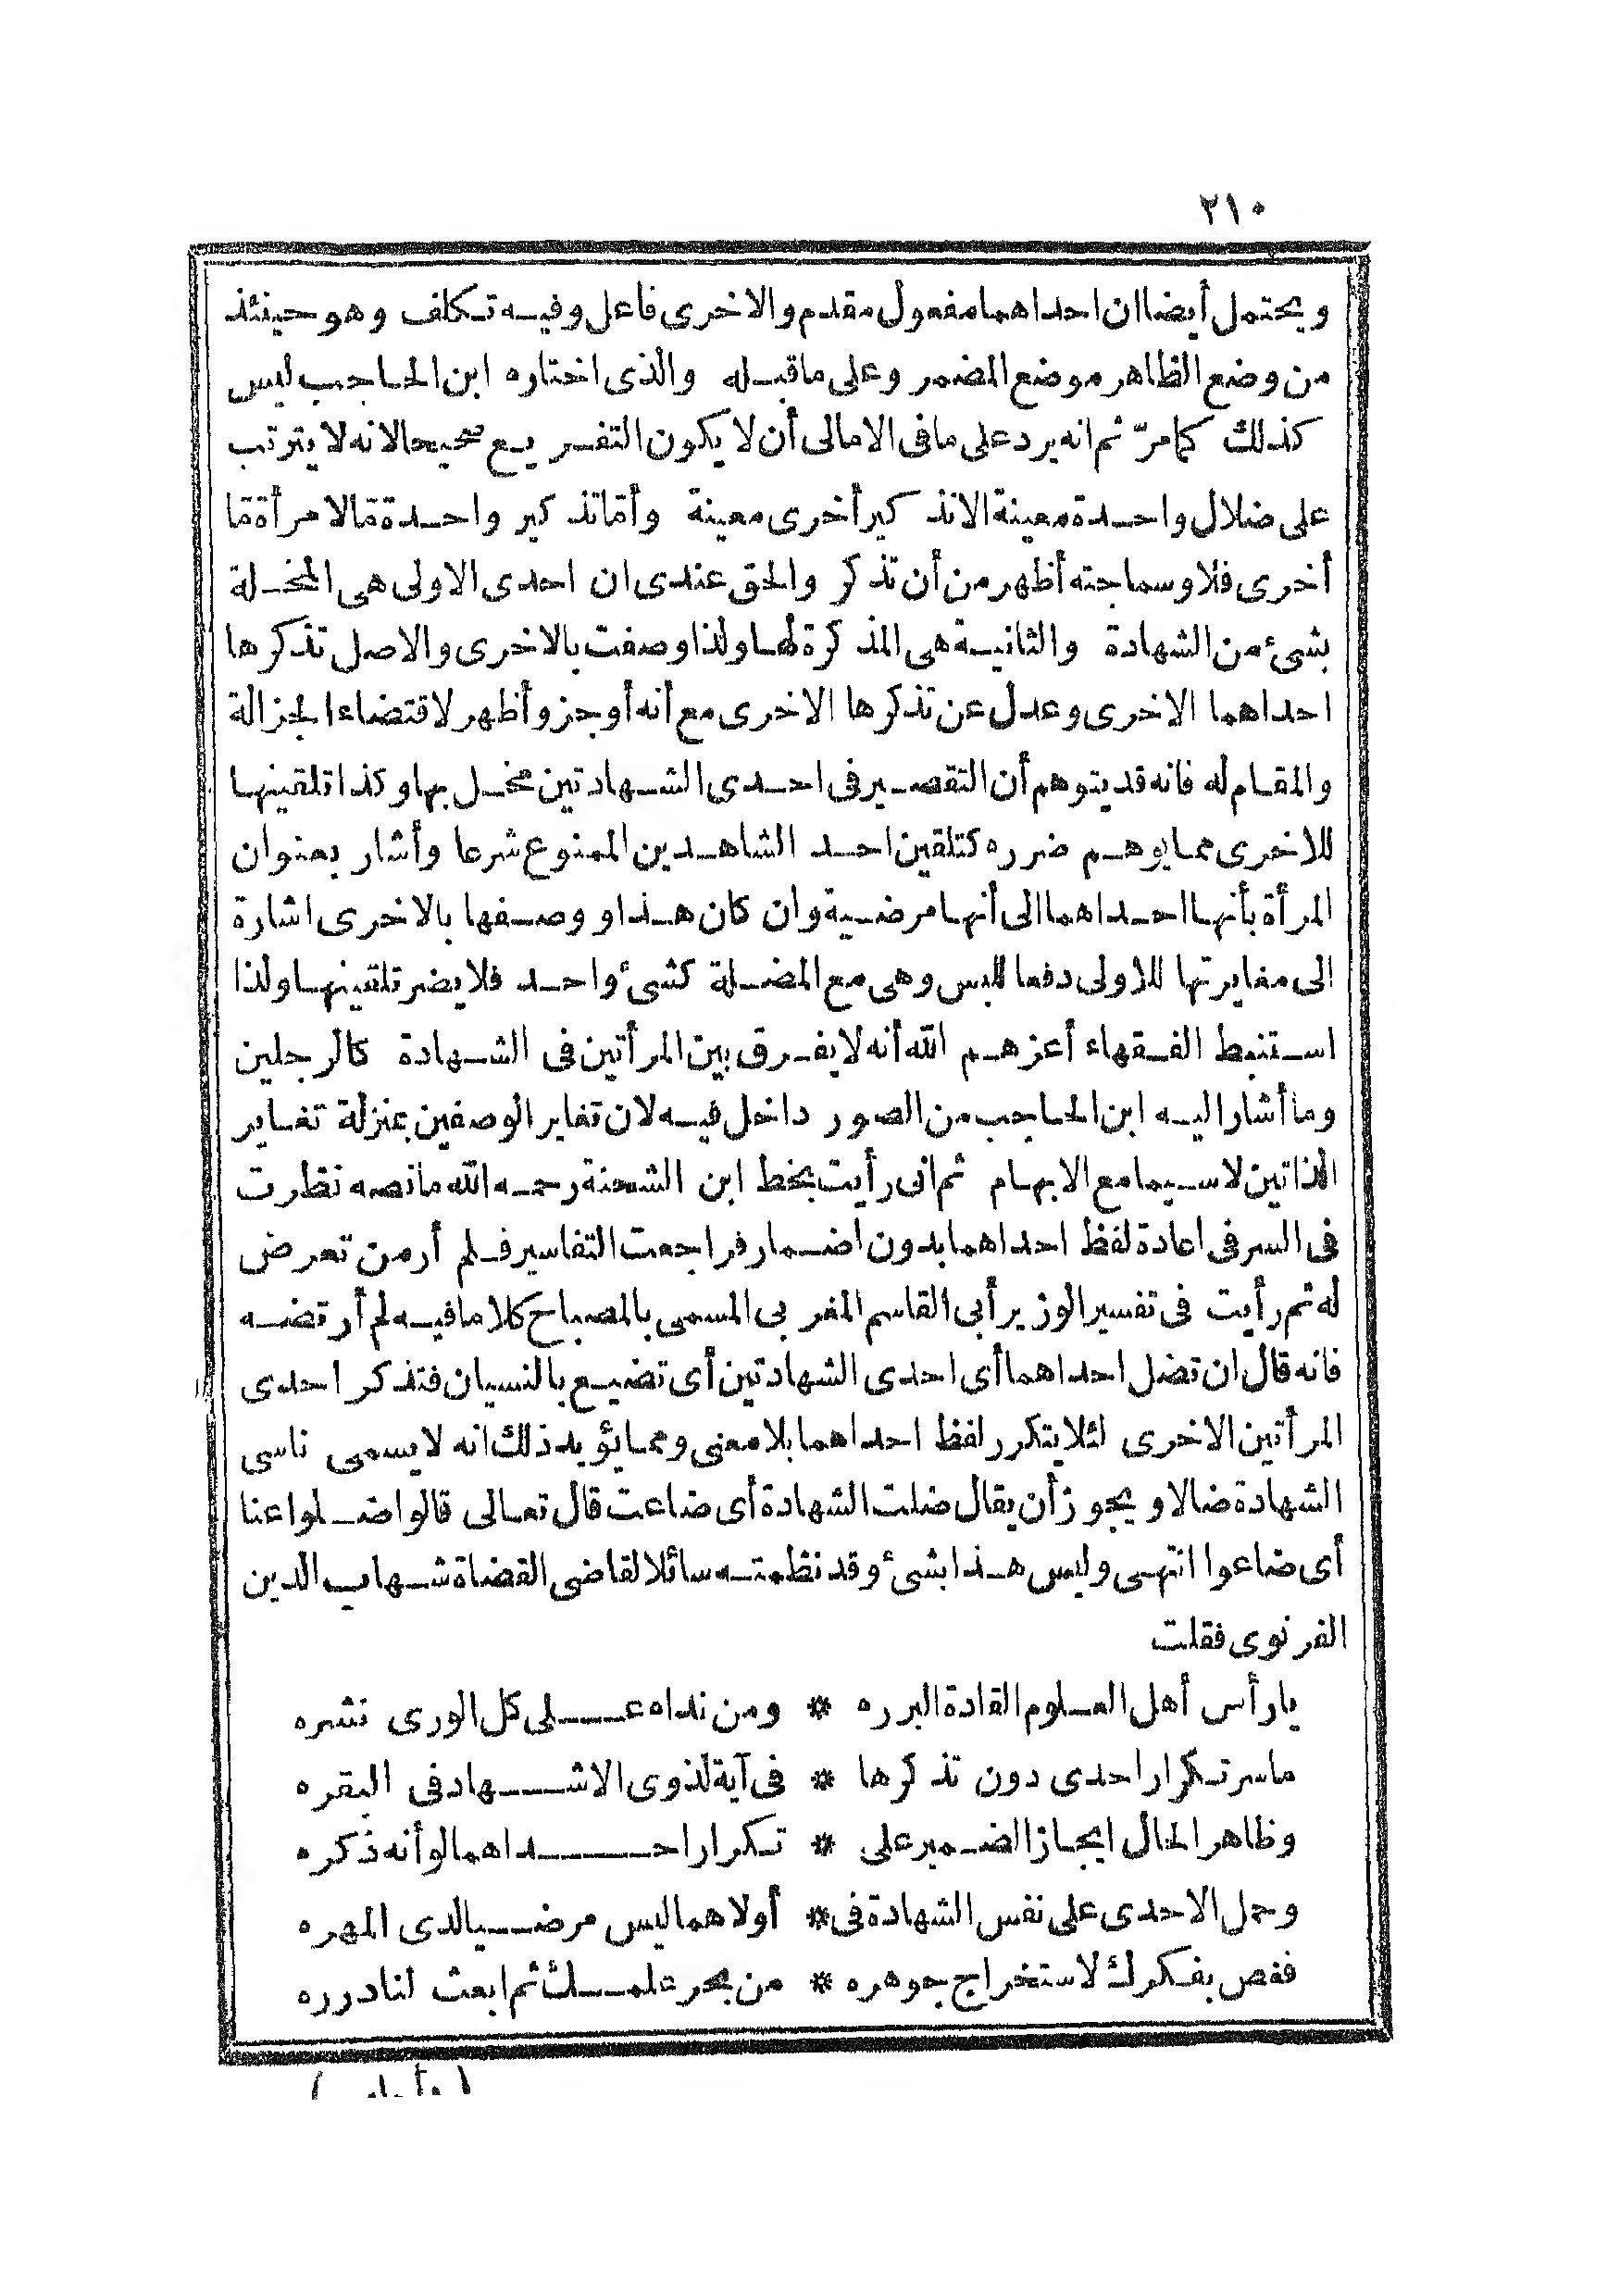 ٢١٠
ويحتمل أيضا ان احداهما مفعول مقدم والاخرى فاعل وفيه تكلف وهو حينئذ
من وضع الظاهر موضع المضمر وعلى ما قبله والذى اختاره ابن الحاجب ليس
كذلك كما مرّ ثم انه يرد على ما فى الامالى أن لا يكون التفريع صحيحا لانه لا يترتب
على ضلال واحدة معينة الا تذكير أخرى معينة وأمّا تذكير واحدة مّا لامرأة مّا
أخرى فلا وسماجته أظهر من أن تذكر والحق عندى ان احدى الاولى هى المخلة
بشئ من الشهادة والثانية هى المذكرة لها ولذا وصفت بالاخرى والاصل تذكرها
احداهما الاخرى وعدل عن تذكرها الاخرى مع أنه أوجز وأظهر لاقتضاء الجزالة
والمقام له فانه قد يتوهم أن التقصير فى احدى الشهادتين مخل بها وكذا تلقينها
للاخرى مما يوهم ضرره كتلقين احد الشاهدين الممنوع شرعا وأشار بعنوان
المرأة بأنها احداهما الى أنها مرضية وان كان هذا و وصفها بالاخرى اشارة
الى مغايرتها للاولى دفعا للبس وهى مع المضلة كشئ واحد فلا يضر تلقينها ولذا
استنبط الفقهاء أعزهم الله أنه لا يفرق بين المرأتين فى الشهادة كالرجلين
وما أشار اليه ابن الحاجب من الصور داخل فيه لان تغاير الوصفين بمنزلة تغاير
الذاتين لا سيما مع الابهام ثم انى رأيت بخط ابن الشحنة رحمه الله ما نصه نظرت
فى السر فى اعادة لفظ احداهما بدون اضمار فراجعت التفاسير فلم أر من تعرض
له ثم رأيت فى تفسير الوزير أبى القاسم المغربى المسمى بالمصباح كلاما فيه لم أرتضه
فانه قال ان تضل احداهما أى احدى الشهادتين أى تضيع بالنسيان فتذكر احدى
المرأتين الاخرى لئلا يتكرر لفظ احداهما بلا معنى ومما يؤيد ذلك انه لا يسمى ناسى
الشهادة ضالا ويجوز أن يقال ضلت الشهادة أى ضاعت قال تعالى قالوا ضلوا عنا
أى ضاعوا انتهى وليس هذا بشئ وقد نظمته سائلا لقاضى القضاة شهاب الدين
الغرنوى فقلت
يا رأس أهل العلوم القادة البرره * ومن نداه على كل الورى نشره
ما سر تكرار احدى دون تذكرها * فى آية لذوى الاشهاد فى البقره
وظاهر الحال ايجاز الضمير على * تكرار احداهما لو أنه ذكره
وحمل الاحدى على نفس الشهادة فى * أولاهما ليس مرضيا لدى المهره
فغص بفكرك لاستخراج جوهره * من بحر علمك ثم ابعث لنا درره